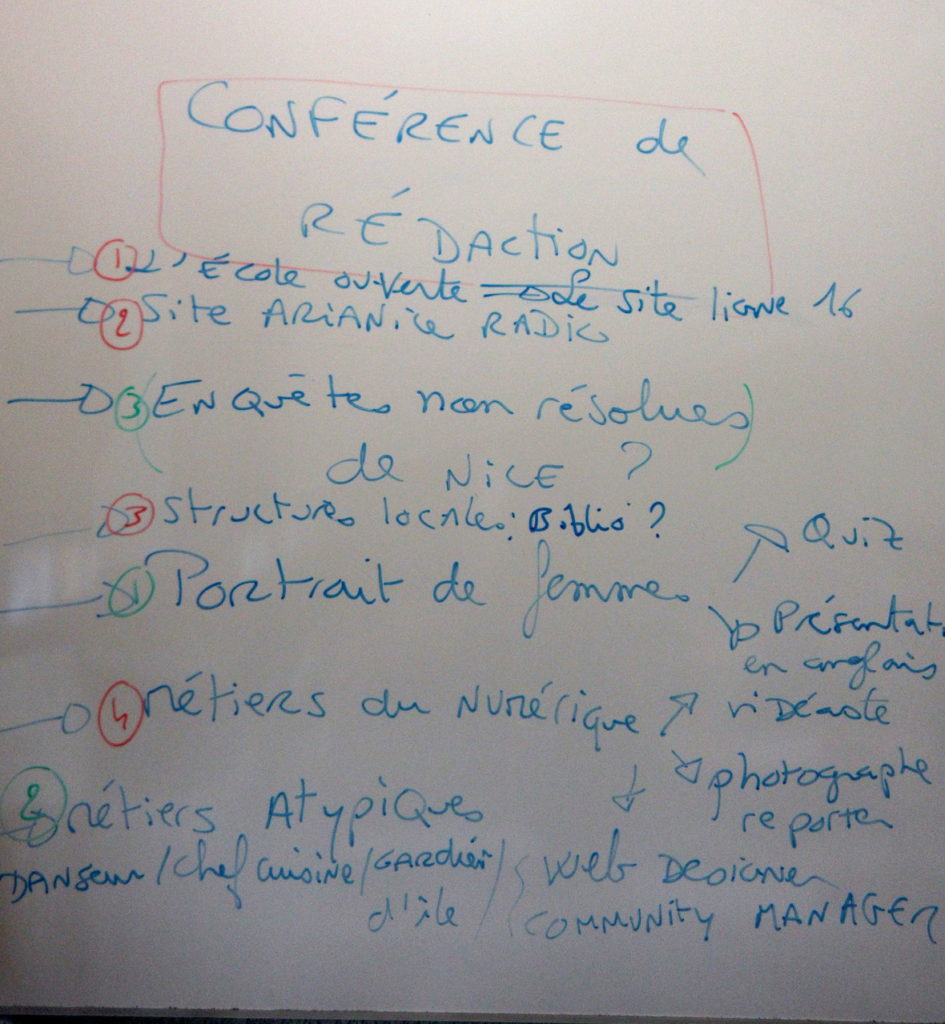 CONFÉRENCE de
RÉDACTION
1 L'École ouverte ⇒ Le site ligne 16
2 Site ARIANice RADIO
3 (ENQuêtes non résolues)
de NICE ?
3 Structures locales: Biblio ?
Quiz
1 Portrait de femmes
Présentat.
en anglais
4 Métiers du Numérique
vidéaste
photographe
reporter
2 métiers Atypiques
DANSeur / chef cuisine / GARdien
d'île
Web Designer
COMMUNITY MANAGER